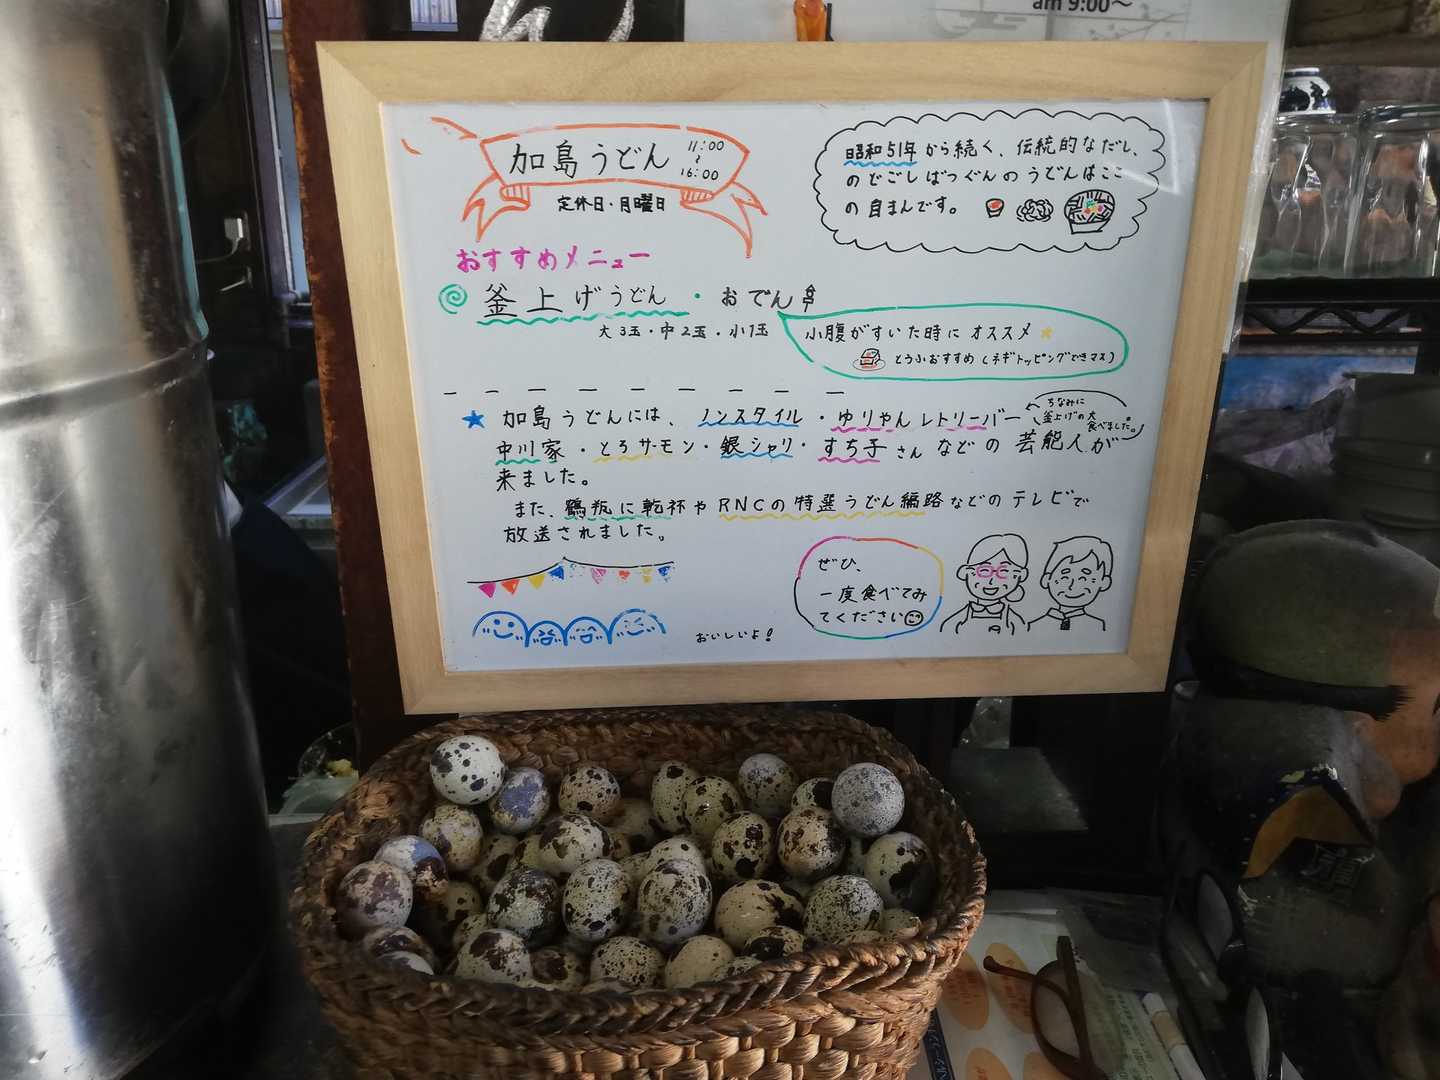 am 9:00〜
加島うどん 11:00 〜 16:00
定休日・月曜日
昭和51年から続く、伝統的なだし、
のどごしばつぐんのうどんはここ
の自まんです。
おすすめメニュー
釜上げうどん・おでん
大3玉・中2玉・小1玉
小腹がすいた時にオススメ
とうふおすすめ(ネギトッピングできマス)
加島うどんには、ノンスタイル・ゆりやんレトリーバー
ちなみに
釜上げの大
食べました。
中川家・とろサーモン・銀シャリ・すち子さんなどの芸能人が
来ました。
また、鶴瓶に乾杯やRNCの特選うどん編路などのテレビで
放送されました。
ぜひ、
一度食べてみ
てください
おいしいよ!